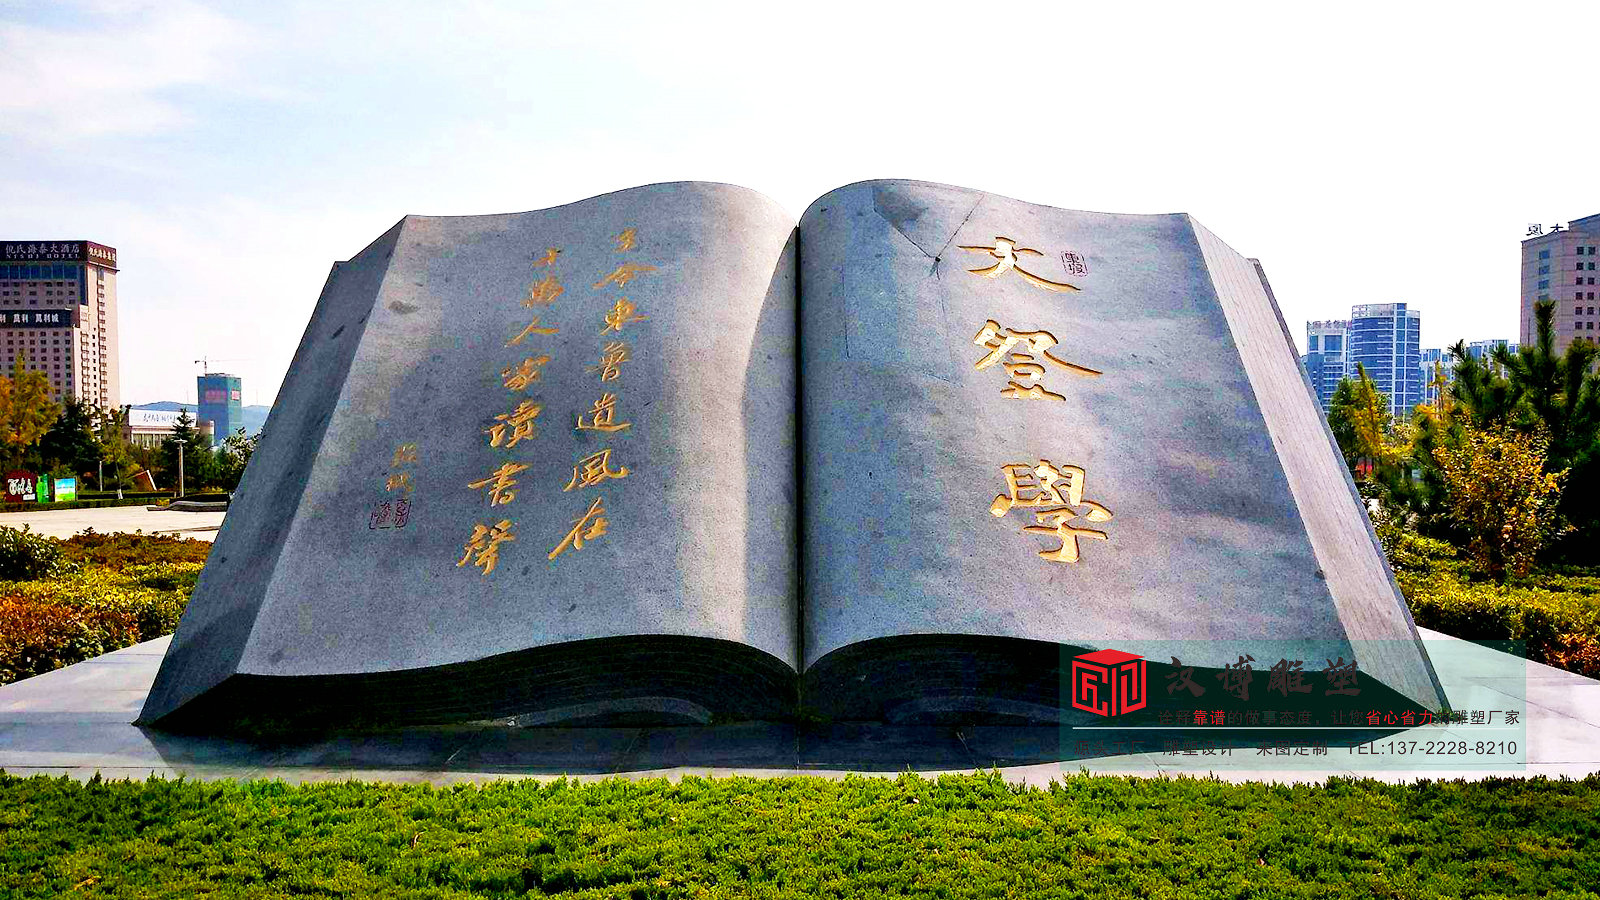 倪氏海泰大酒店
NISHI HOTEL
文登學
至今東魯遺風在
十萬人家讀書聲
汉博雕塑
诠释靠谱的做事态度，让您省心省力的雕塑厂家
源头工厂 雕塑设计 来图定制 TEL:137-2228-8210